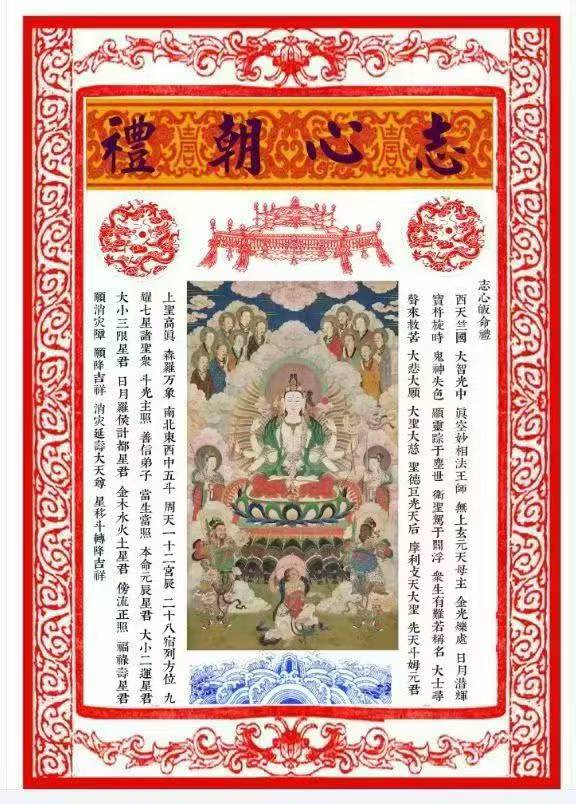 志心朝禮
志心皈命禮
西天竺國 大智光中 眞空妙相法王師 無上玄元天母主 金光爍處 日月潛輝
寶杵旋時 鬼神失色 顯靈踪于塵世 衛聖駕于閻浮 衆生有難若稱名 大士尋
聲來救苦 大悲大願 大聖大慈 聖德巨光天后 摩利支天大聖 先天斗姆元君
上聖高眞 森羅万象 南北東西中五斗 周天一十二宮辰 二十八宿列方位 九
耀七星諸聖衆 斗光主照 善信弟子 當生當照 本命元辰星君 大小二運星君
大小三限星君 日月羅侯計都星君 金木水火土星君 傍流正照 福祿壽星君
願消灾障 願降吉祥 消灾延壽大天尊 星移斗轉降吉祥